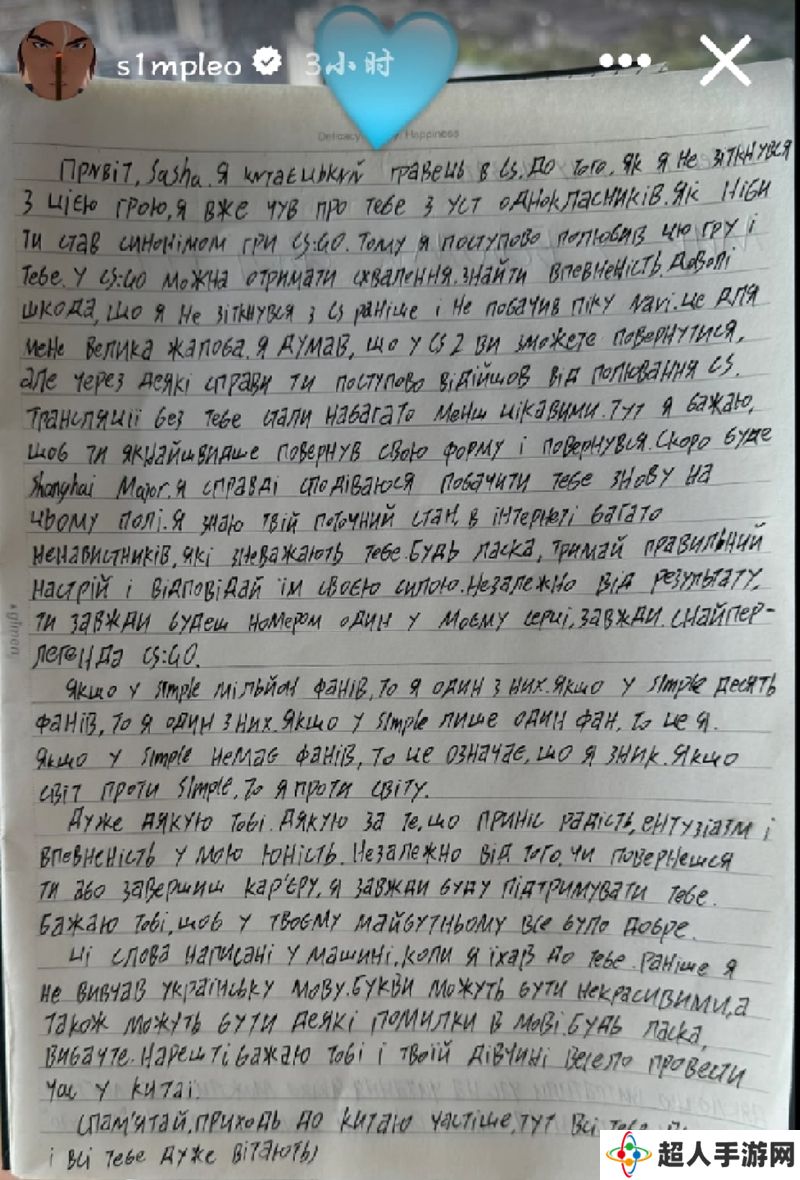 s1mpleo 3小时
Delicacy Happiness
Привіт, Sasha. Я китаєцький гравець в CS. До того, як я не зіткнувся
з цією грою, я вже чув про тебе з уст однокласників. Як ніби
ти став синонімом гри CS:GO. Тому я поступово полюбив цю гру і
тебе. У CS:GO можна отримати схвалення. Знайти впевненість. Доволі
шкода, що я не зіткнувся з CS раніше і не побачив піку Navi. Це для
мене велика жалоба. Я думав, що у CS 2 ви зможете повернутися,
але через деякі справи ти поступово відійшов від полювання CS.
Трансляції без тебе стали набагато менш цікавими. Тут я бажаю,
щоб ти якнайшвидше повернув свою форму і повернувся. Скоро буде
Shanghai Major. Я справді сподіваюся побачити тебе знову на
цьому полі. Я знаю твій поточний стан, в інтернеті багато
ненависників, які зневажають тебе. Будь ласка, тримай правильний
настрій і відповідай їм своєю силою. Незалежно від результату,
ти завжди будеш номером один у моєму серці, завжди. Снайпер-
легенда CS:GO.
Якщо у Simple мільйон фанів, то я один з них. Якщо у Simple десять
фанів, то я один з них. Якщо у Simple лише один фан, то це я.
Якщо у Simple немає фанів, то це означає, що я зник. Якщо
світ проти Simple, то я проти світу.
Дуже дякую тобі. Дякую за те, що приніс радість, ентузіазм і
впевненість у мою юність. Незалежно від того, чи повернешся
ти або завершиш кар'єру, я завжди буду підтримувати тебе.
Бажаю тобі, щоб у твоєму майбутньому все було добре.
Ці слова написані у машині, коли я їхав до тебе. Раніше я
не вивчав українську мову. Букви можуть бути некрасивими, а
також можуть бути деякі помилки в мові. Будь ласка,
вибачте. Нарешті бажаю тобі і твоїй дівчині весело провести
час у Китаї.
Спам'ятай, приходь до Китаю частіше, тут всі тебе
і всі тебе дуже вітають)
超人手游网